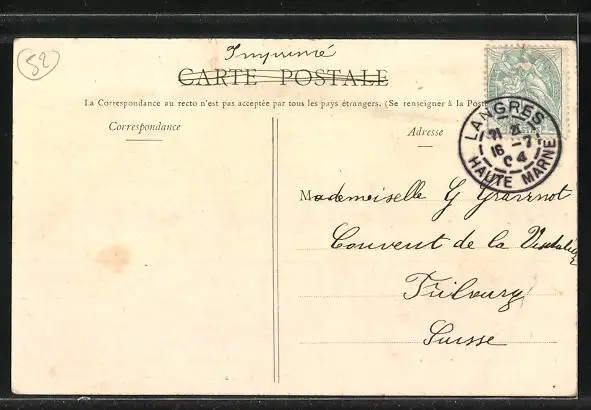 52
Imprimé
CARTE POSTALE
La Correspondance au recto n'est pas acceptée par tous les pays étrangers. (Se renseigner à la Post
Correspondance
Adresse
LANGRES
16 -7
04
HAUTE MARNE
Mademoiselle G
Couvent de la
Fribourg
Suisse